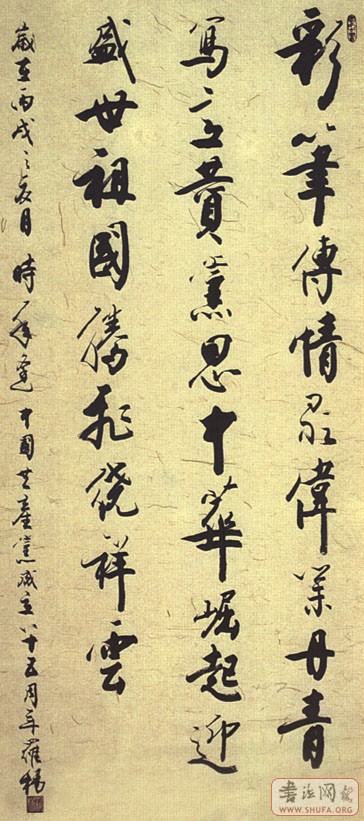 彩筆傳情偉業丹青
寫贊黨恩中華崛起迎
盛世祖國騰飛繞祥雲
歲在丙戌之夏月 時逢中國共產黨成立八十五周年羅楊
WWW.SHUFA.ORG